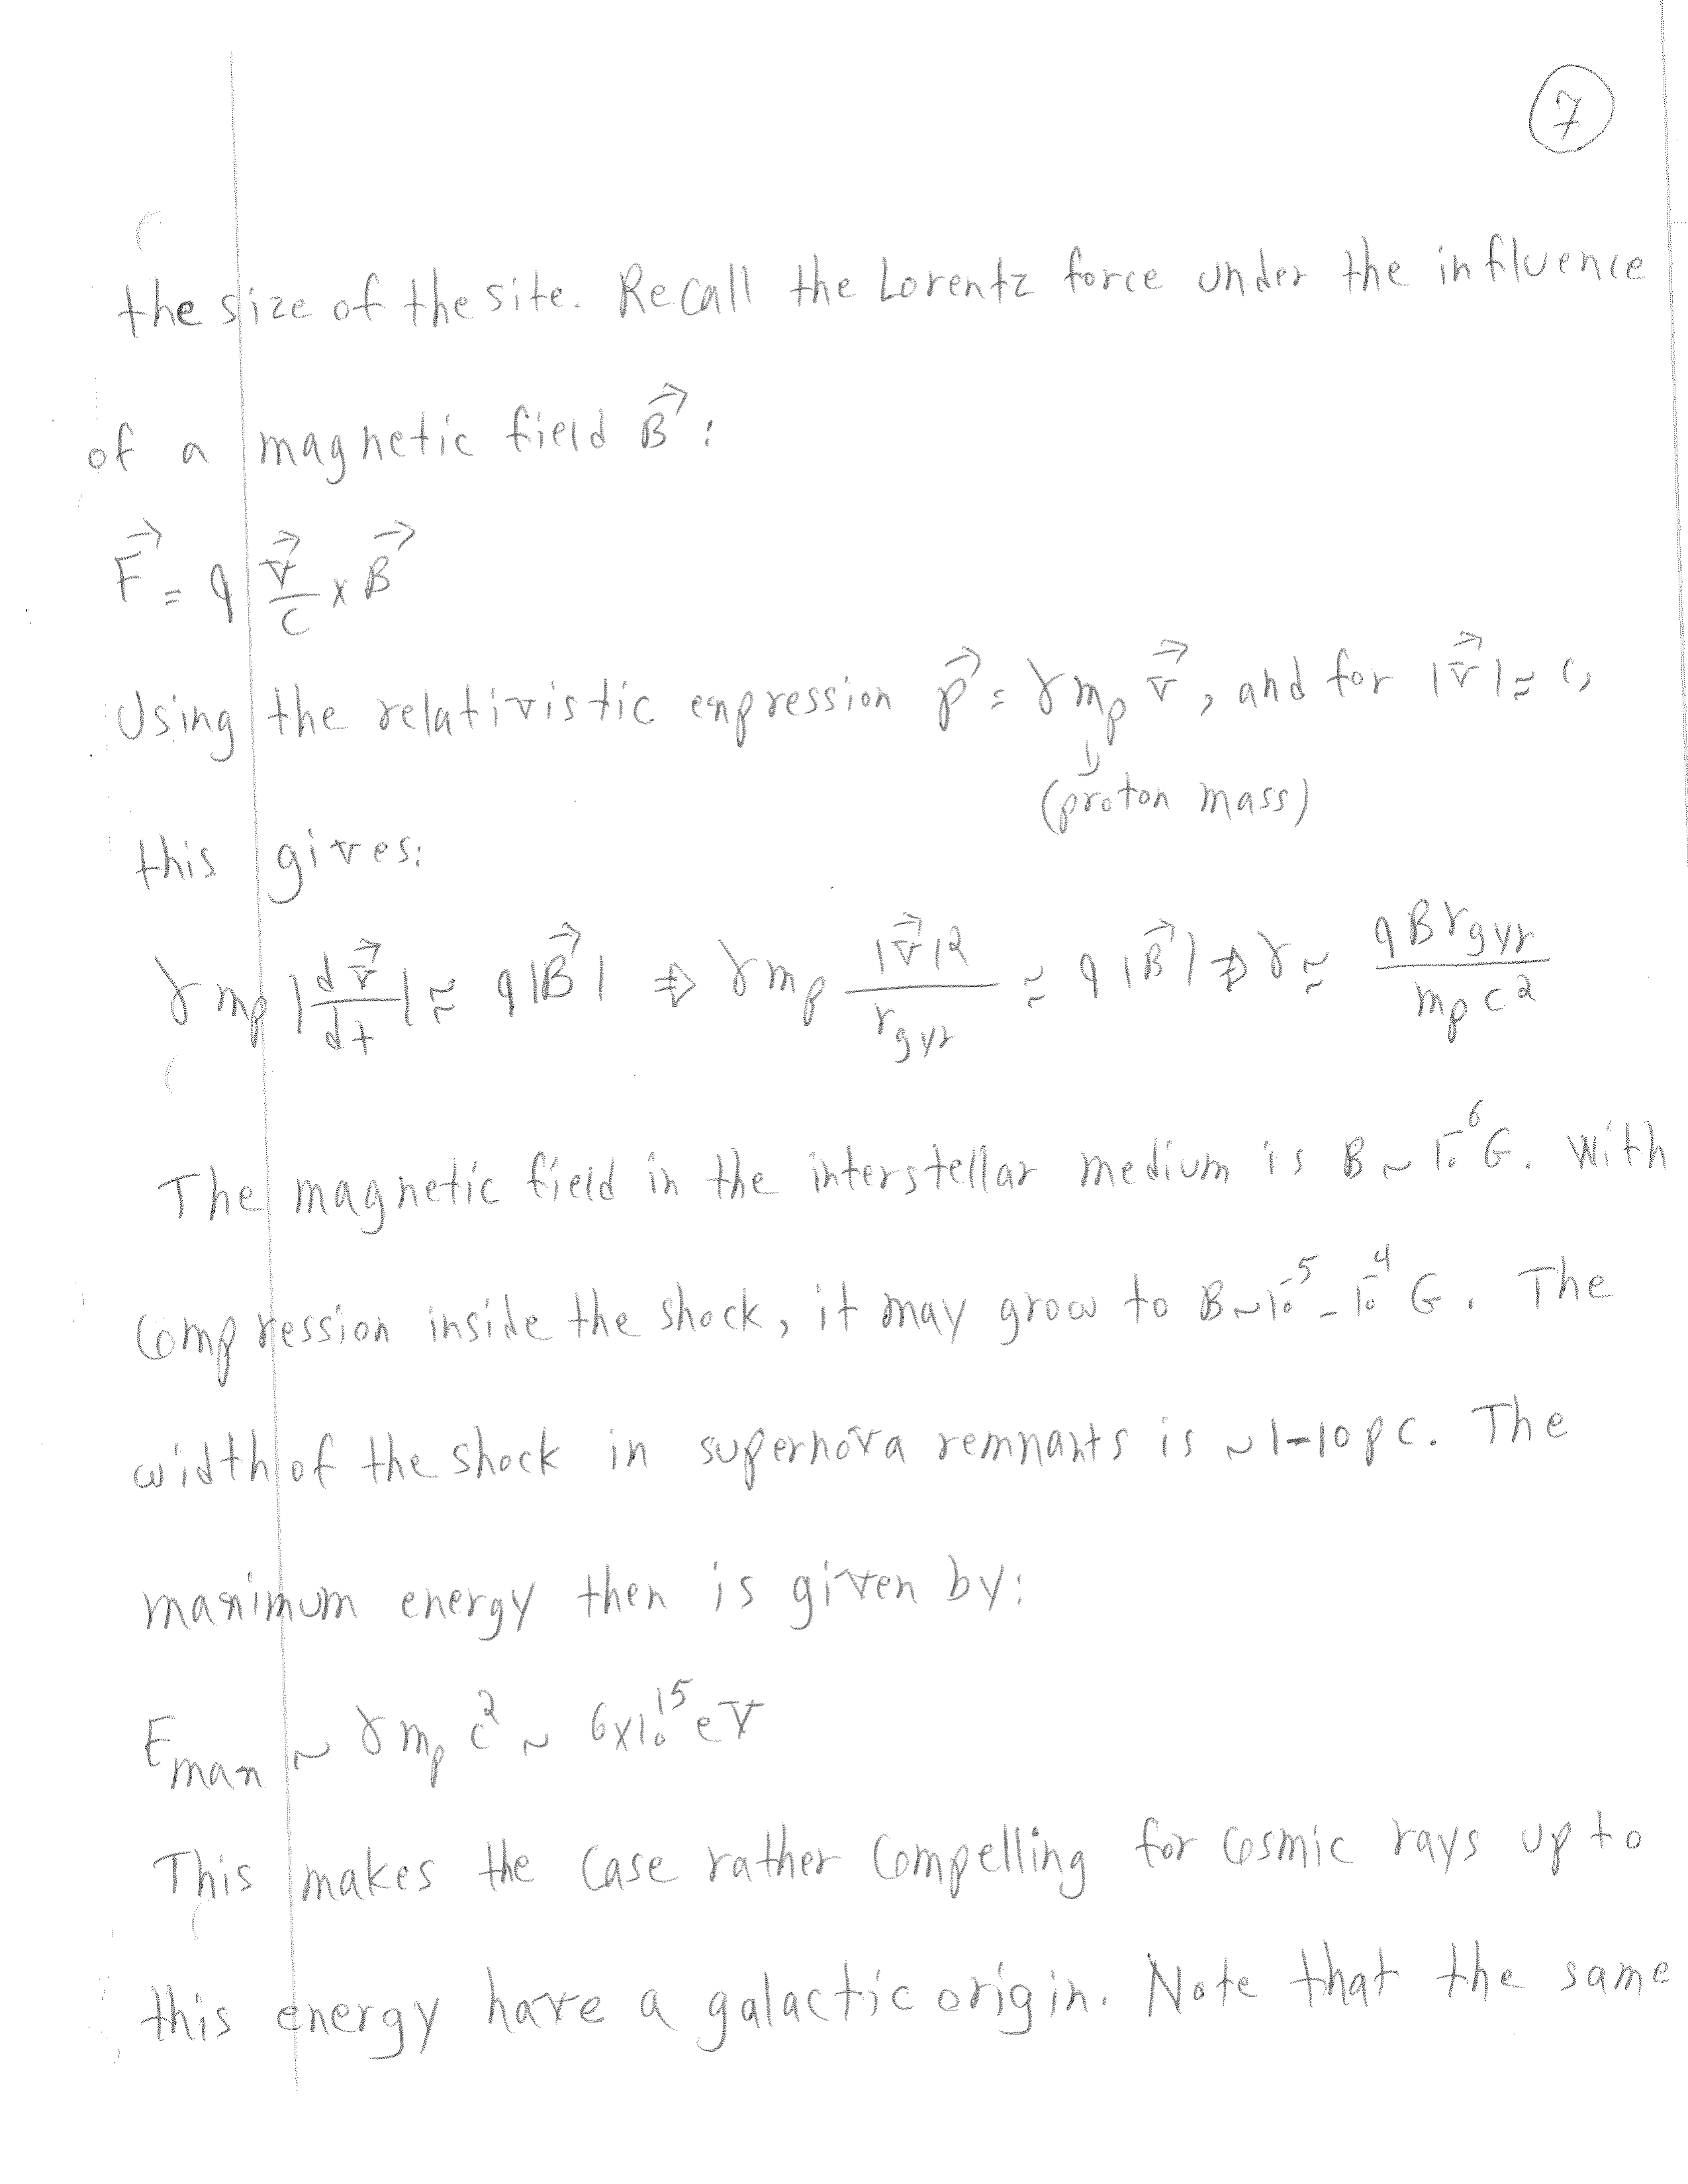 7
the size of the site. Recall the Lorentz force under the influence
of a magnetic field \vec{B}:
\vec{F} = q \frac{\vec{v}}{c} × \vec{B}
Using the relativistic expression \vec{p} = γ m_p \vec{v}, and for |\vec{v}| ≃ c,
(proton mass)
this gives:
γ m_p |\frac{d\vec{v}}{dt}| ≃ q|\vec{B}| ⇒ γ m_p \frac{|\vec{v}|^2}{r_{gyr}} ≃ q|\vec{B}| ⇒ γ ≃ \frac{q B r_{gyr}}{m_p c^2}
The magnetic field in the interstellar medium is B ~ 10^{-6} G. With
compression inside the shock, it may grow to B ~ 10^{-5} - 10^{-4} G. The
width of the shock in supernova remnants is ~ 1-10 pc. The
maximum energy then is given by:
E_{max} ~ γ m_p c^2 ~ 6×10^{15} eV
This makes the case rather compelling for cosmic rays up to
this energy have a galactic origin. Note that the same